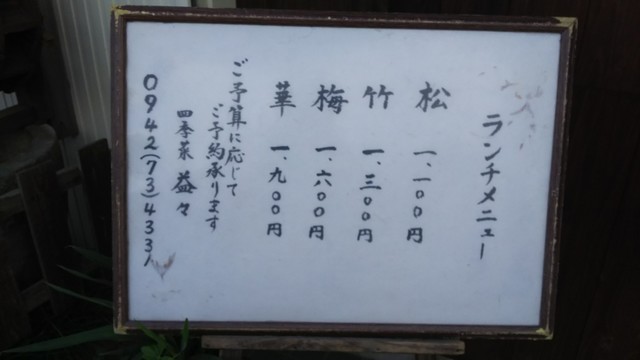 ランチメニュー
松 一、一〇〇円
竹 一、三〇〇円
梅 一、六〇〇円
華 一、九〇〇円
ご予算に応じて
ご予約承ります
四季菜 益々
0942(73)4331